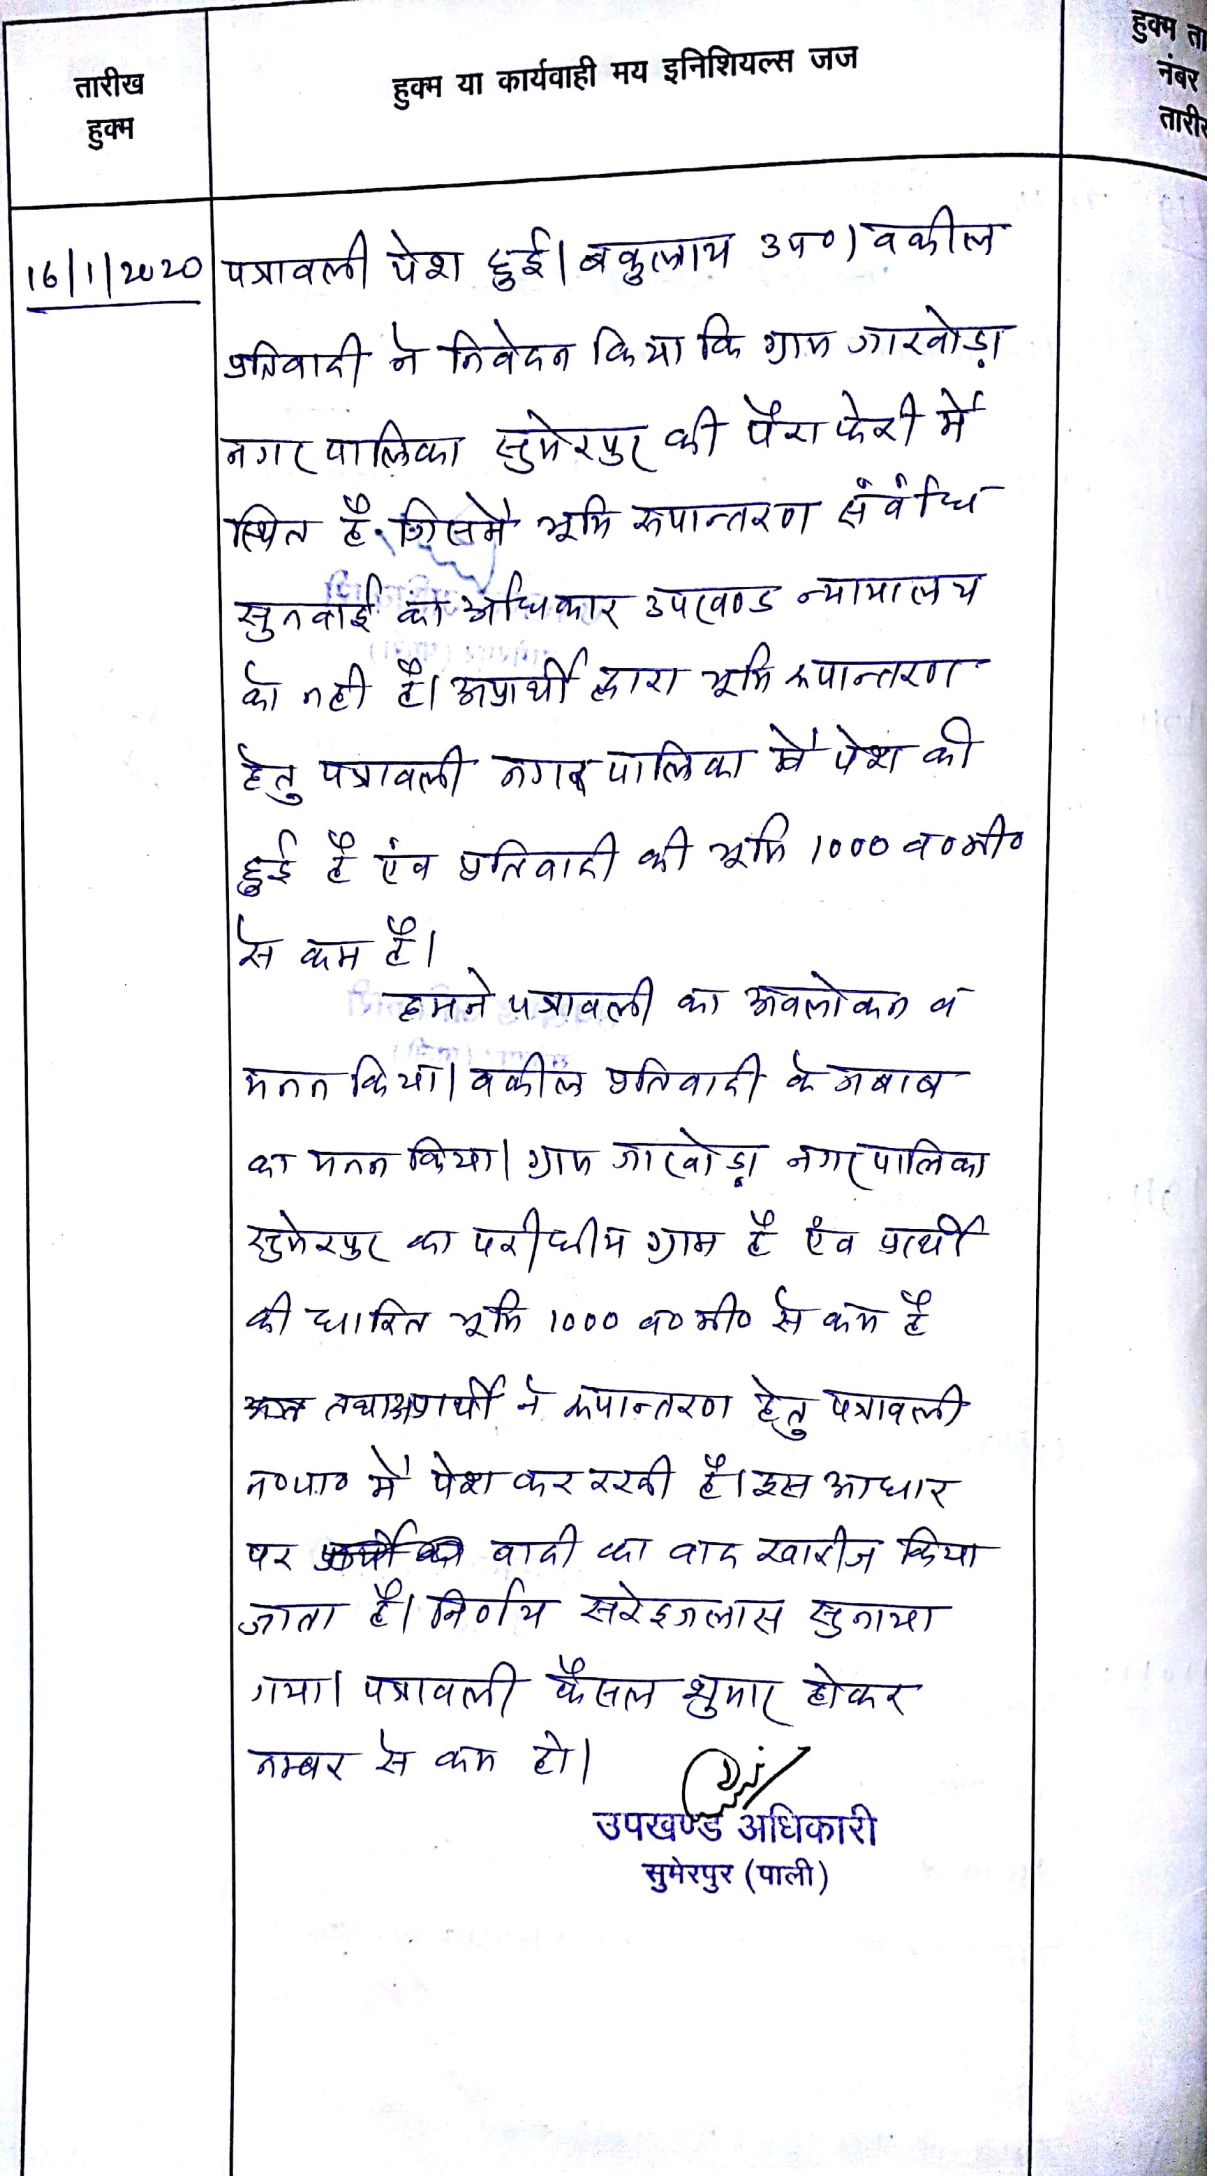 तारीख
हुक्म
हुक्म या कार्यवाही मय इनिशियल्स जज
हुक्म ता
नंबर
तारीख
16/1/2020
पत्रावली पेश हुई। वकुलाय उप०। वकील
प्रतिवादी ने निवेदन किया कि ग्राम जाखोड़ा
नगर पालिका सुमेरपुर की पैराफेरी में
स्थित है. जिसमें भूमि रूपान्तरण संबंधि
सुनवाई का अधिकार उपखण्ड न्यायालय
को नही है। अप्रार्थी द्वारा भूमि रूपान्तरण
हेतु पत्रावली नगर पालिका में पेश की
हुई है एंव प्रतिवादी की भूमि 1000 व०मी०
से कम है।
हमने पत्रावली का अवलोकन व
मनन किया। वकील प्रतिवादी के जबाब
का मनन किया। ग्राम जाखोड़ा नगरपालिका
सुमेरपुर का परीधीय ग्राम है एंव प्रार्थी
की धारित भूमि 1000 व० मी० से कम है
तथा अप्रार्थी ने रूपान्तरण हेतु पत्रावली
न०पा० में पेश कर रखी है। इस आधार
पर वादी का वाद खारीज किया
जाता है। निर्णय सरेइजलास सुनाया
गया। पत्रावली फैसल शुमार होकर
नम्बर से कम हो।
उपखण्ड अधिकारी
सुमेरपुर (पाली)